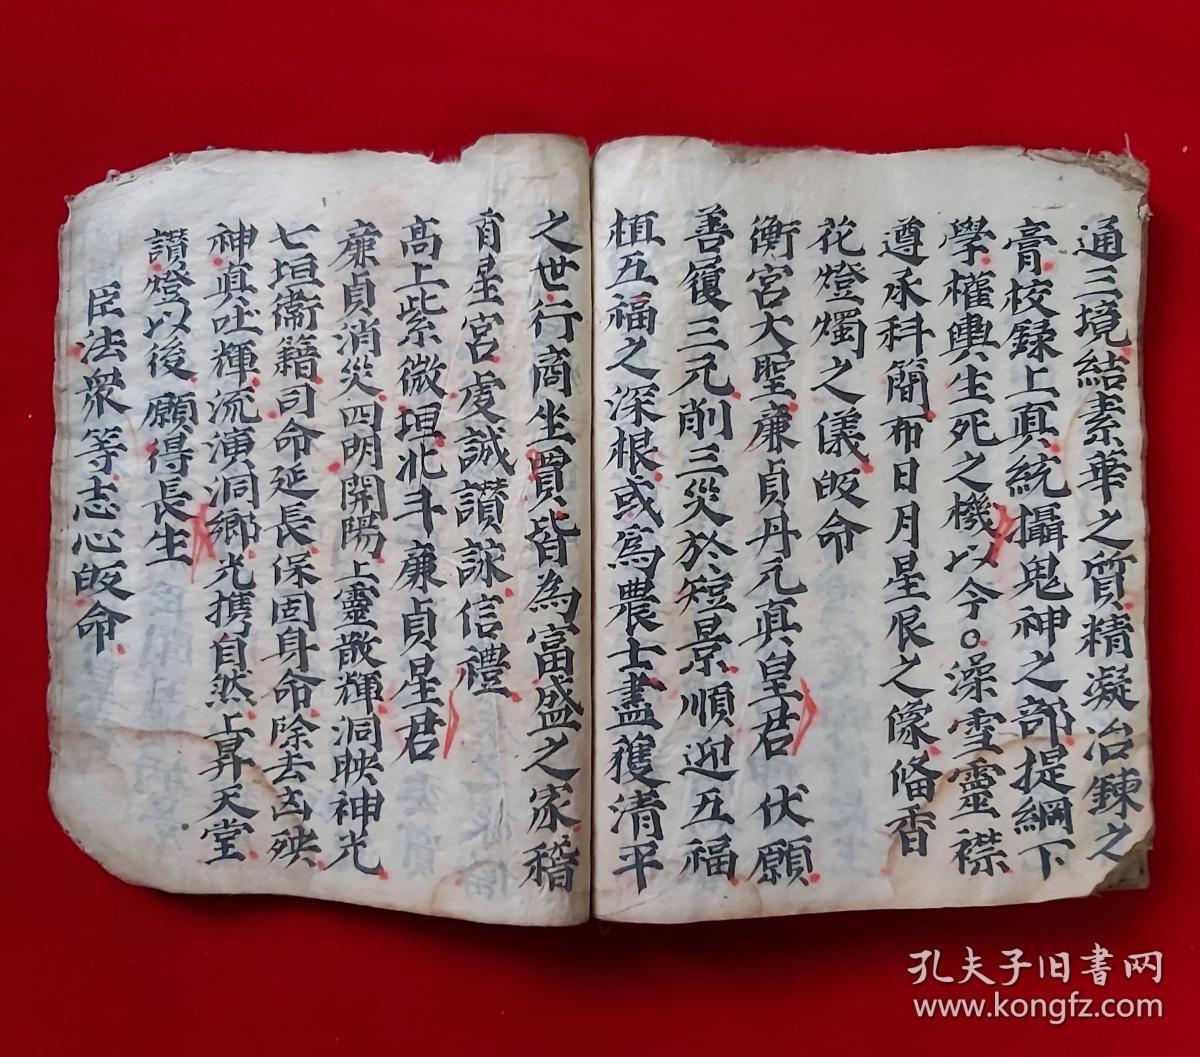 通三境結素華之質精凝冶鍊之
膏校録上真統懾鬼神之部提綱下
學權輿生死之機以今○澡雪靈襟
遵承科簡布日月星辰之像俻香
花燈燭之儀皈命
衡宮大聖廉貞丹元真皇君 伏願
善履三元削三災於短景順迎五福
植五福之深根或為農士盡獲清平
之世行商坐賈皆為富盛之家稽
首星宮虔誠讃詠信禮
高上紫微垣北斗廉貞星君
廉貞消災四明開陽上靈散輝洞映神光
七垣衛籍司命延長保固身命除去凶殃
神真吐輝流演洞鄉光携自然上昇天堂
讃燈以後願得長生
臣法衆等志心皈命
孔夫子旧書网
www.kongfz.com